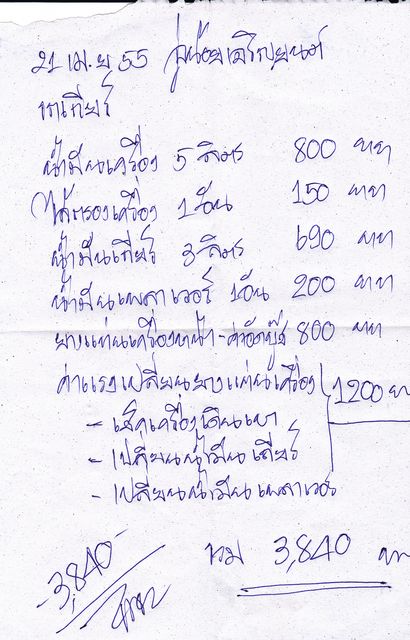 21 เม.ย 55 อู่น้อยเจริญยนต์
น้ำมันเครื่อง 5 ลิตร 800 บาท
ไส้กรองเครื่อง 1 อัน 150 บาท
น้ำมันเกียร์ 3 ลิตร 690 บาท
น้ำมันเพาเวอร์ 1 อัน 200 บาท
ยางแท่นเครื่องหน้า - ค่าอัดบู๊ช 800 บาท
ค่าแรงเปลี่ยนยางแท่นเครื่อง 1200 บ
- เช็คเครื่องเดินเบา
- เปลี่ยนน้ำมันเกียร์
- เปลี่ยนน้ำมันเพาเวอร์
รวม 3,840 บ
-3,840-